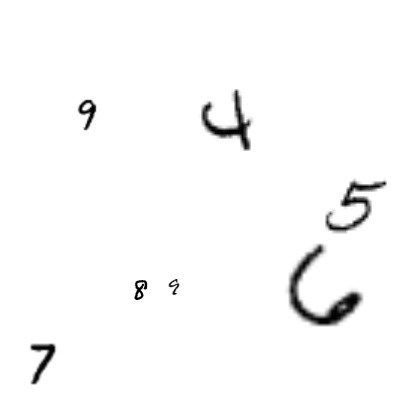 9 4
5
8 9 6
7